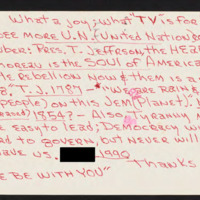 What a joy; what "TV" is for
see more U.N. (United Nation
uber: Pres. T. Jefferson the HEA
oreau is the SOUL of America
le Rebellion now & them is a
g," T.J. 1787 "We are Rain &
people) on this Jem (Planet)."
1854? - Also Tyranny
be easy to lead; Democracy w
ad to govern, but never will
ave us. 1990
Thanks
E BE WITH YOU"